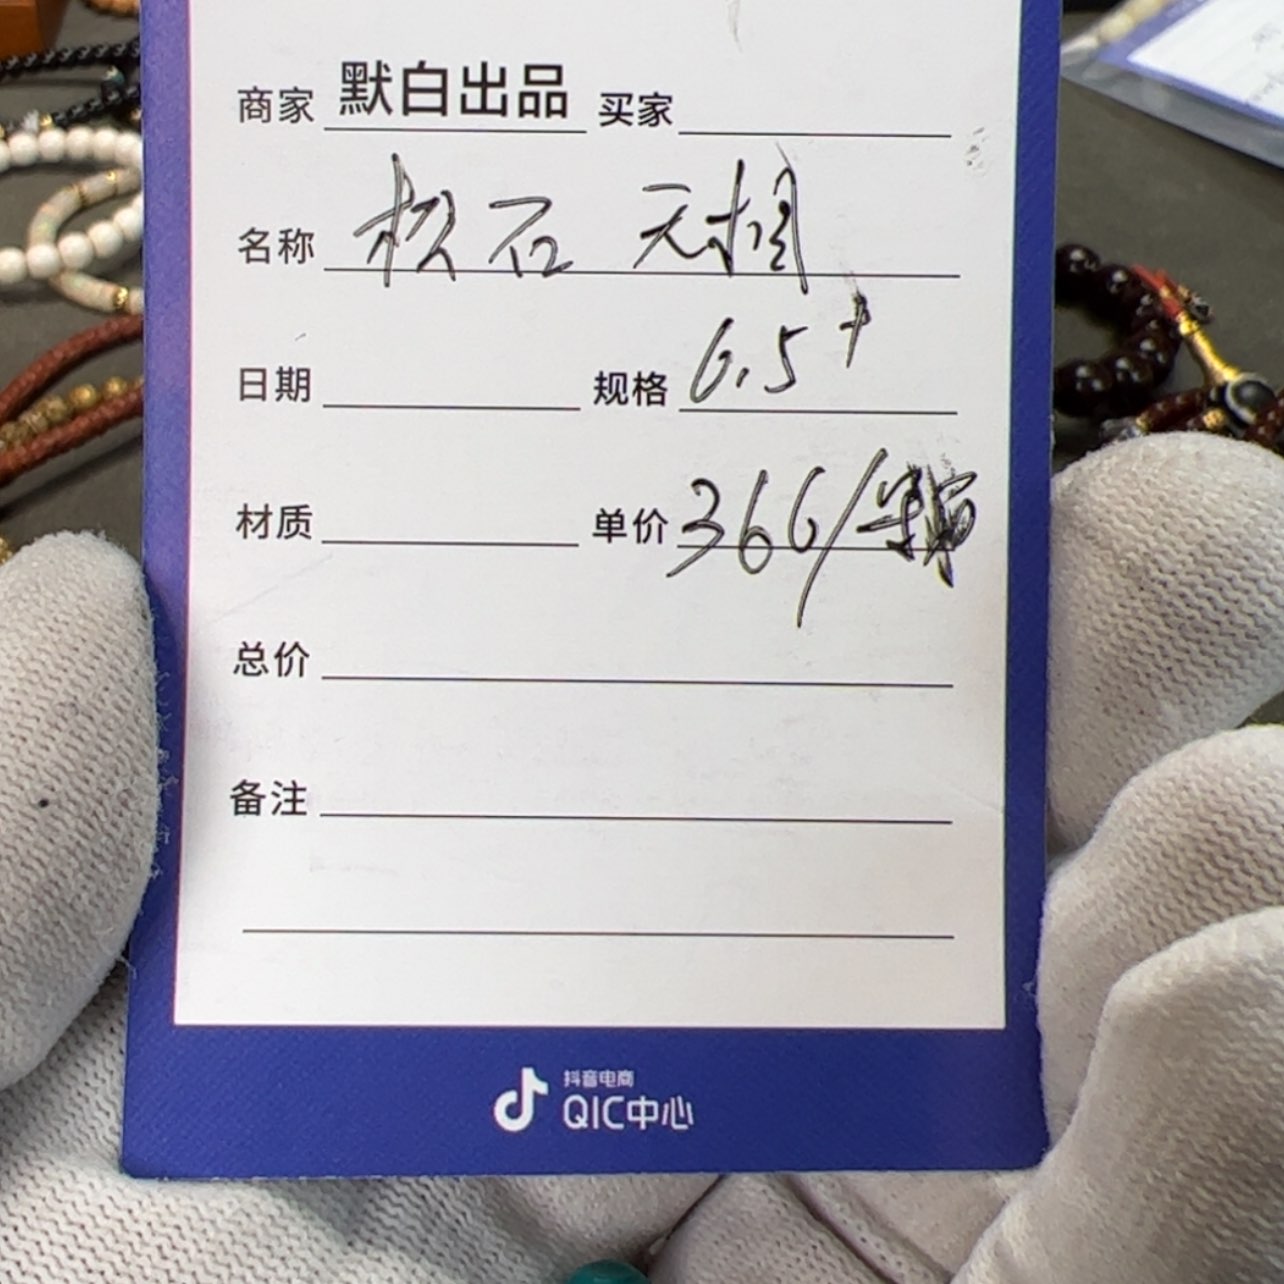 商家 默白出品 买家
名称 松石 无相
日期 规格 6.5+
材质 单价 366/
总价
备注
抖音电商
QIC中心